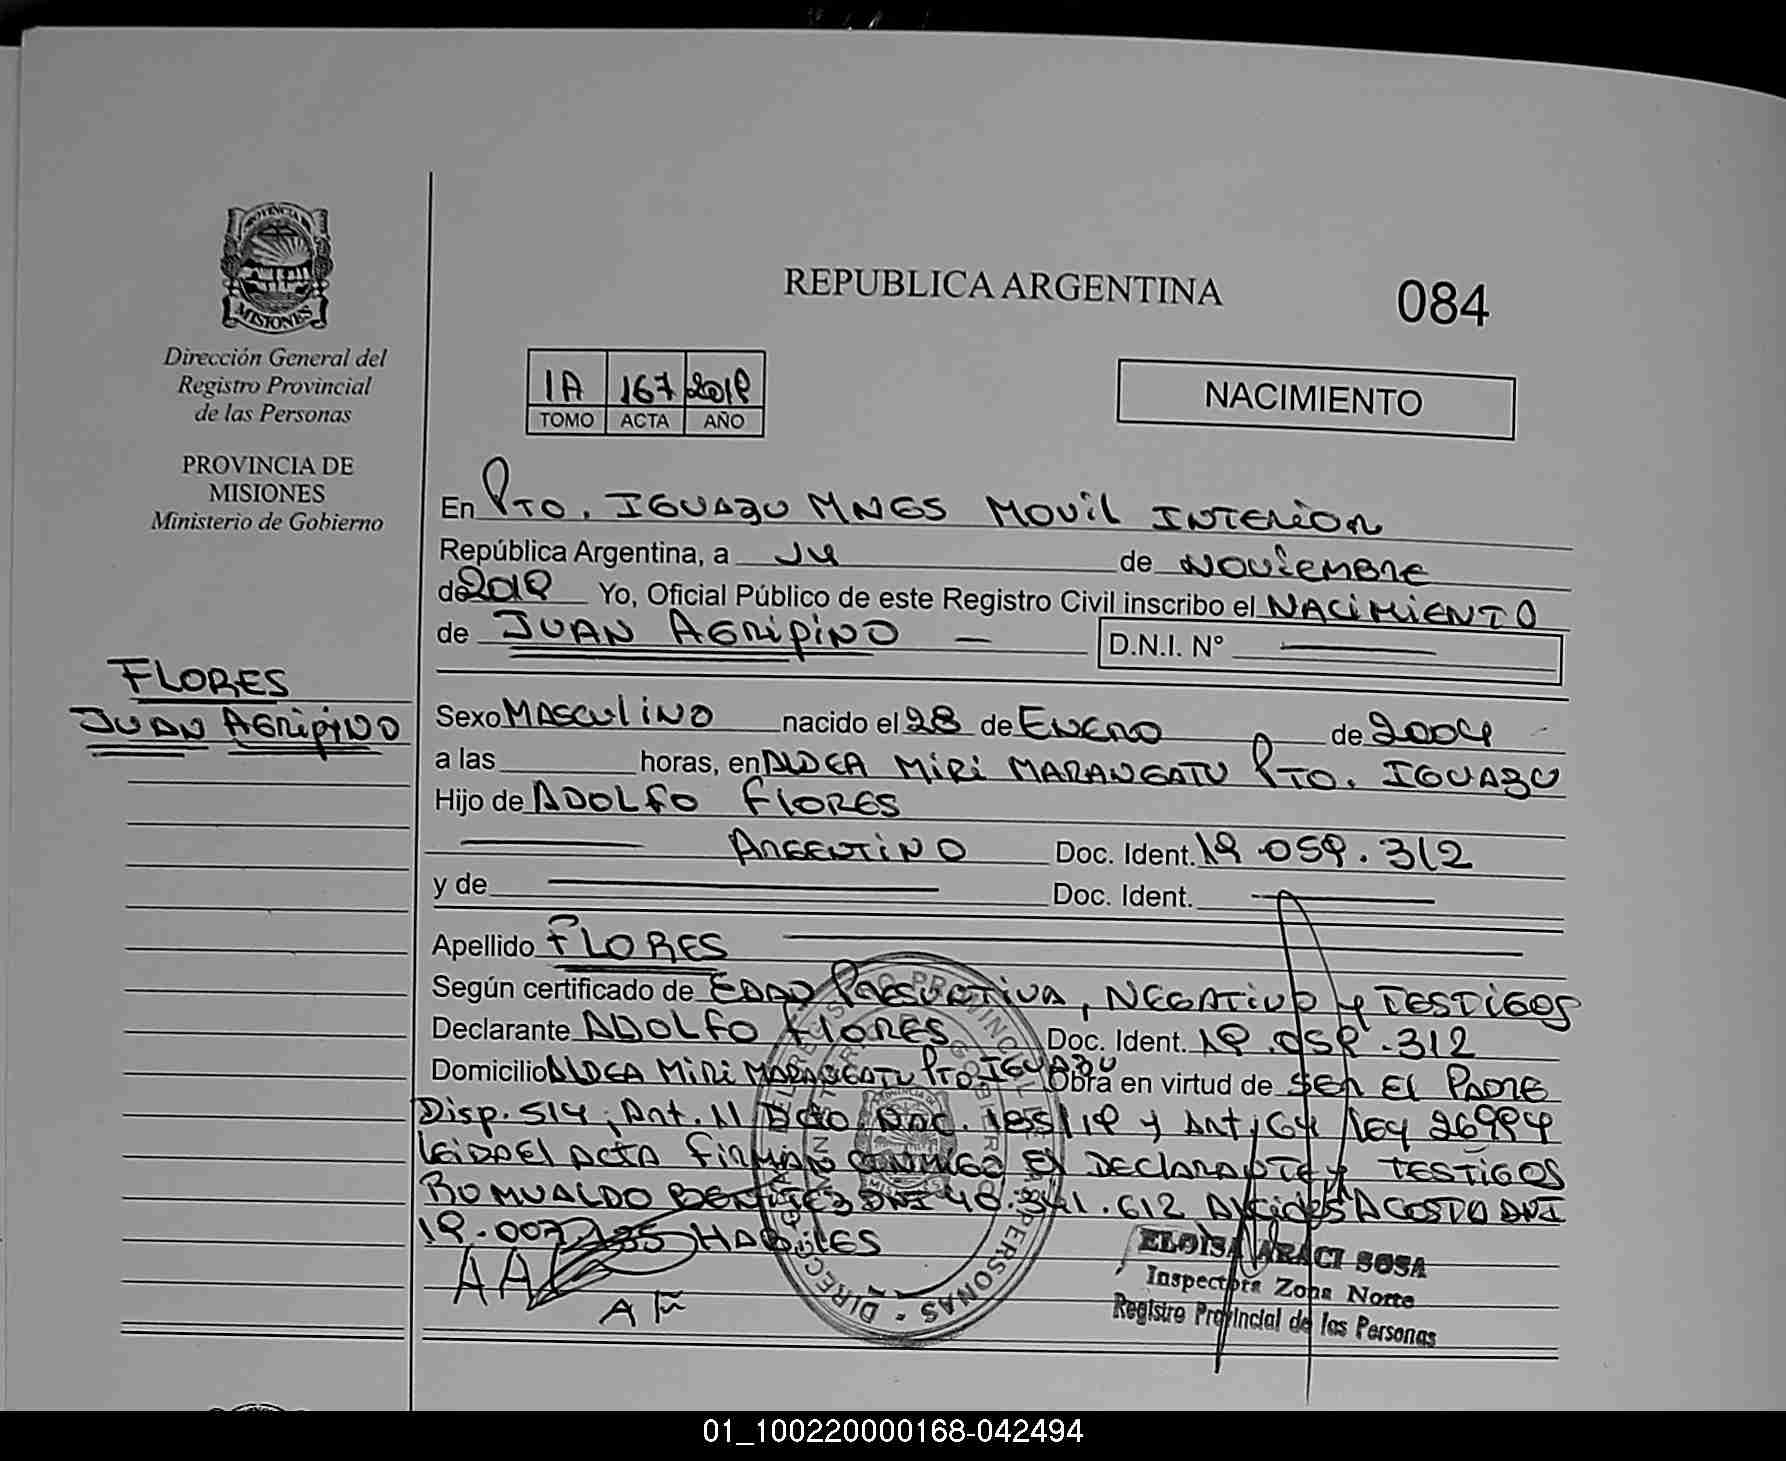 PROVINCIA DE
MISIONES
Dirección General del
Registro Provincial
de las Personas
PROVINCIA DE
MISIONES
Ministerio de Gobierno
FLORES
JUAN AGRIPINO
REPUBLICA ARGENTINA
084
1A 167 2019
TOMO ACTA AÑO
NACIMIENTO
En Pto. IGUAZU MNES MOVIL INTERIOR
República Argentina, a 14 de NOVIEMBRE
de 2019 Yo, Oficial Público de este Registro Civil inscribo el NACIMIENTO
de JUAN AGRIPINO — D.N.I. Nº
Sexo MASCULINO nacido el 28 de ENERO de 2004
a las horas, en ALDEA MIRI MARANGATU Pto. IGUAZU
Hijo de ADOLFO FLORES
ARGENTINO Doc. Ident. 19.059.312
y de Doc. Ident.
Apellido FLORES
Según certificado de EDAD PRESUNTIVA, NEGATIVO y TESTIGOS
Declarante ADOLFO FLORES Doc. Ident. 19.059.312
Domicilio ALDEA MIRI MARANGATU Pto IGUAZU Obra en virtud de SER EL PADRE
Disp. 514, Art. 11 Dcto Nac. 185/19 y Art, 64 ley 26994
LEIDA El ACTA FIRMAN CONMIGO El DECLARANTE y TESTIGOS
ROMUALDO BENITEZ DNI 40.341.612 Alcides ACOSTA DNI
19.007.135 HABILES
AAL
A Fñ
DIRECC REGISTRO PROVINCIAL PERSONAS
ELOISA ARACI SOSA
Inspectora Zona Norte
Registro Provincial de las Personas
01_100220000168-042494